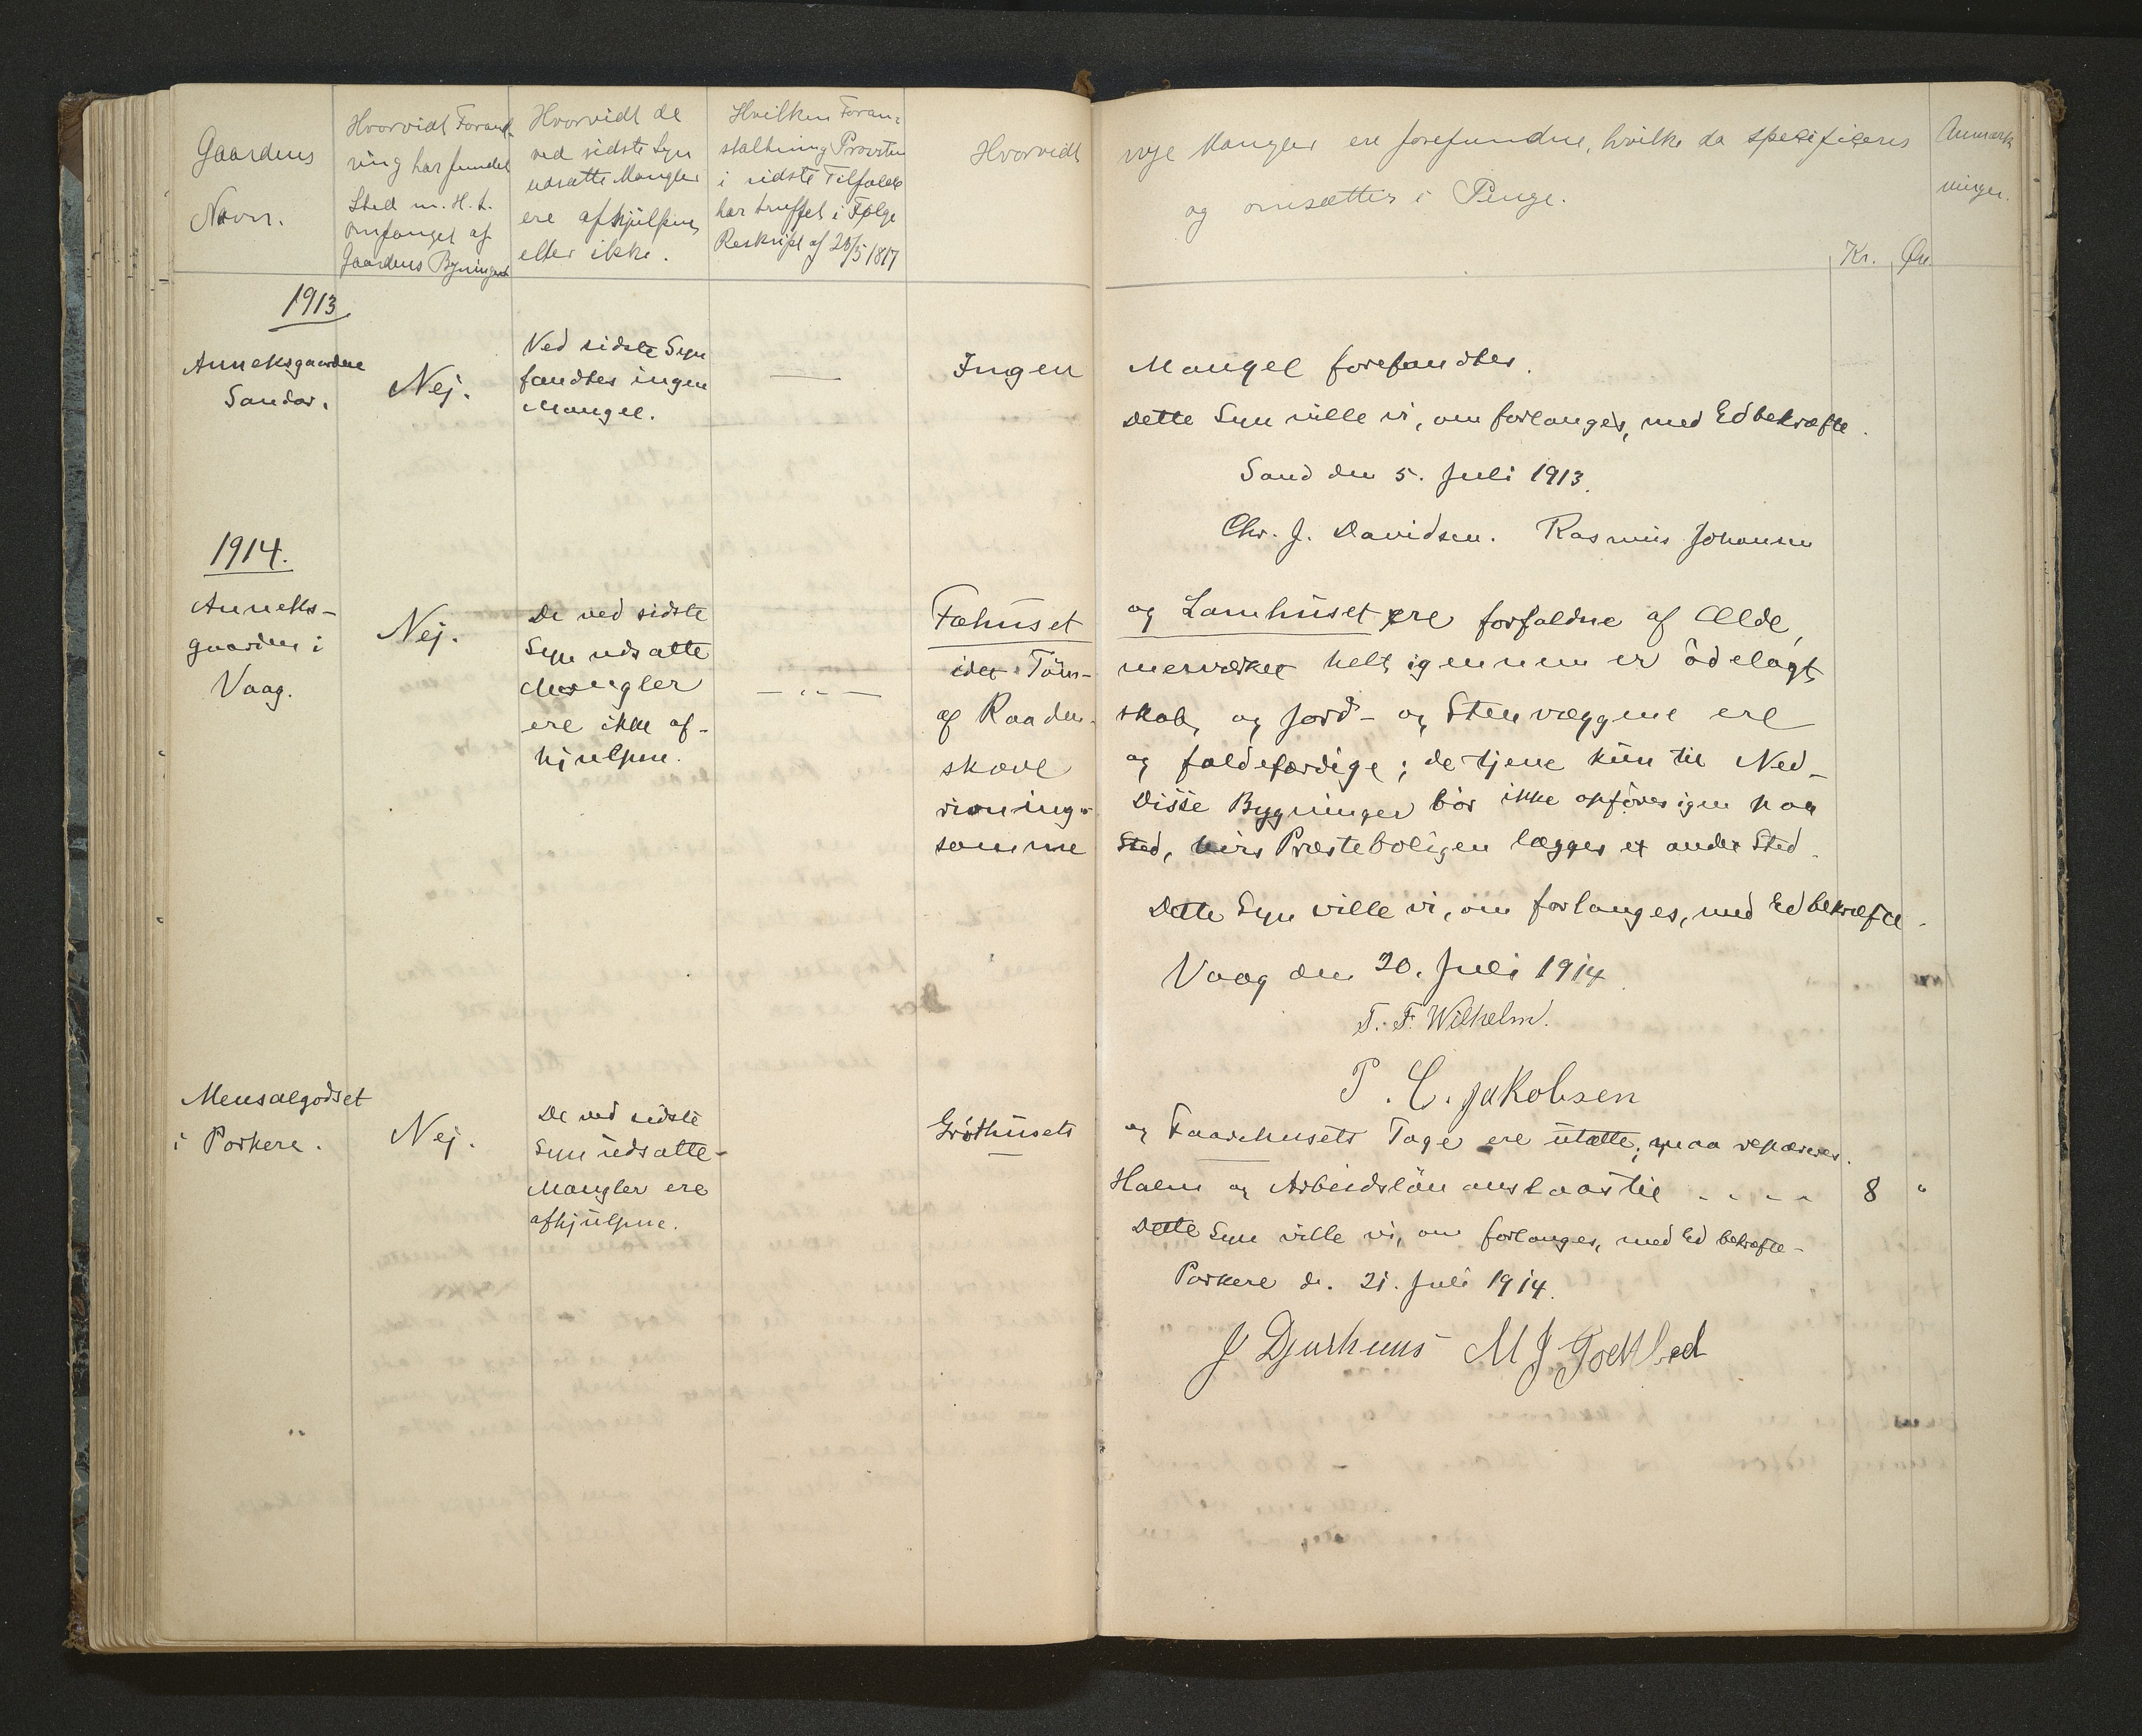 Gaardens
Navn.
Hvorvidt Forand-
ring har fundet
Sted m. H. t.
Omfanget af
Gaardens Bygninger
Hvorvidt de
ved sidste Syn
udsatte Mangler
ere afhjulpne,
eller ikke.
Hvilken Foran-
staltning Provsten
i sidste Tilfælde
har truffet i Følge
Reskript af 1817
Hvorvidt nye Mangler ere forefundne, hvilke da specificeres
og omsættes i Penge.
Kr. Øre
Anmærk
ninger.
1913
Anneksgaardene
Sandør.
Nej.
Ved sidste Syn
fandtes ingen
Mangel.
—
Ingen Mangel forefandtes.
Dette Syn ville vi, om forlanges, med Ed bekræfte.
Sand den 5. Juli 1913.
Chr. J. Davidsen. Rasmus Johansen
1914.
Anneks-
gaarden i
Vaag.
Nej.
De ved sidste
Syn udsatte
Mangler
ere ikke af-
hjulpne.
— " —
Fæhuset og Lamhuset ere forfaldne af Ælde,
idet Töm- merværket helt igennem er ödelagt
af Raaden- skab, og Jord- og Stenvæggene ere
skæve og faldefærdige; de tjene kun til Ned-
rivning. Disse Bygninger bör ikke opföres igen paa
samme Sted, hvis Præsteboligen lægges et andet Sted.
Dette Syn ville vi, om forlanges, med Ed bekræfte.
Vaag den 20. Juli 1914.
T. F. Wilhelm.
P. C. Jakobsen
Mensalgodset
i Porkere.
Nej.
De ved sidste
Syn udsatte
Mangler ere
afhjulpne.
Gröthusets og Faarehusets Tage ere utætte; maa repareres.
Halm og Arbeidslön anslaas til - - - - 8 "
Dette Syn ville vi, om forlanges, med Ed bekræfte-
Porkere d. 21. Juli 1914.
J Djurhuus M J Godtfred